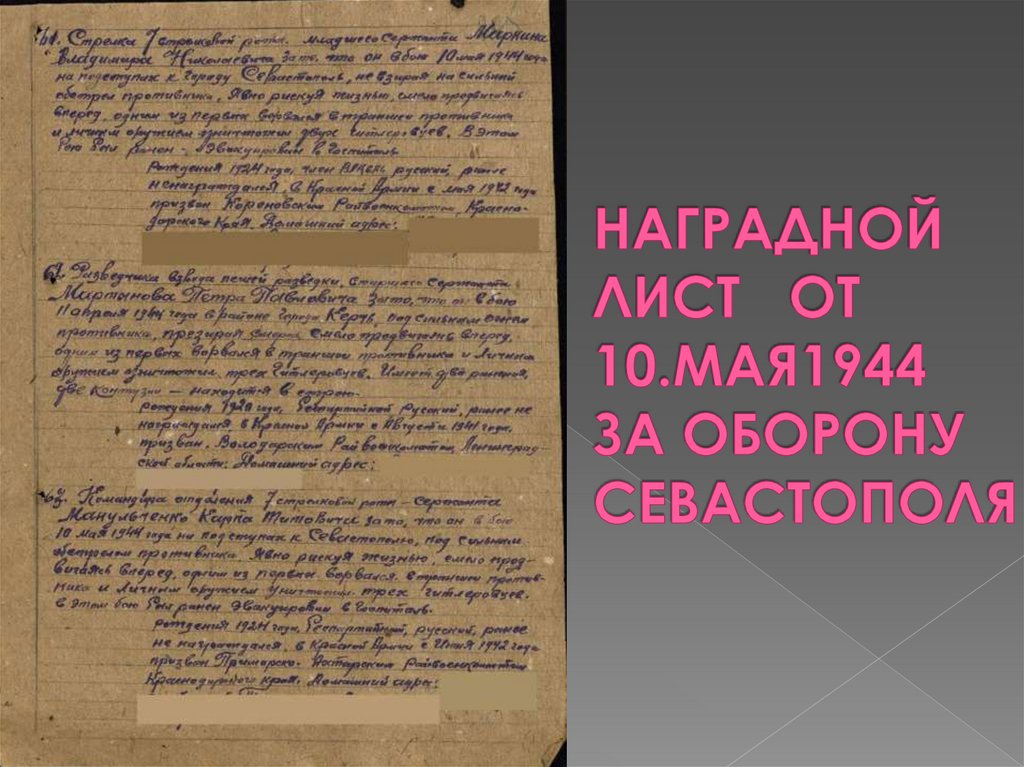 61. Стрелка 7 стрелковой роты. младшего сержанта Маркина
Владимира Николаевича За то, что он в бою 10 мая 1944 года
на подступах к городу Севастополь, не взирая на сильный
обстрел противника, Явно рискуя жизнью, смело продвигаясь
вперед, одним из первых ворвался в траншеи противника
и личным оружием уничтожил двух гитлеровцев. В этом
бою был ранен - эвакуирован в госпиталь.
Рождения 1924 года, член ВЛКСМ русский, ранее
не награждался, в Красной Армии с мая 1942 года
призван Кореновским Райвоенкоматом, Красно-
дарского Края, Домашний адрес:
Разведчика взвода пешей разведки, старшего сержанта
Мартынова Петра Павловича За то, что он в бою
11 апреля 1944 года в районе города Керчь, под сильным огнем
противника, презирая смерть смело продвигаясь вперед,
одним из первых ворвался в траншеи противника и личным
оружием уничтожил трех Гитлеровцев. Имеет два ранения,
две контузии – находится в строю.
рождения 1920 года, беспартийный Русский, ранее не
награждался, в Красной Армии с Августа 1941 года,
призван Володарским Райвоенкоматом Ленинград-
ской области: Домашний адрес:
Командира отделения 7 стрелковой роты - сержанта
Манульченко Карпа Титовича за то, что он в бою
10 мая 1944 года на подступах к Севастополю, под сильным
обстрелом противника. Явно рискуя жизнью, смело прод-
вигаясь вперед, одним из первых ворвался в траншеи против-
ника и личным оружием уничтожил трех гитлеровцев.
в этом бою был ранен Эвакуирован в госпиталь.
рождения 1924 года, беспартийный, русский, ранее
не награждался, в Красной Армии с Июня 1942 года
призван Приморско-Ахтарским Райвоенкоматом
Краснодарского края, Домашний адрес:
НАГРАДНОЙ
ЛИСТ ОТ
10.МАЯ1944
ЗА ОБОРОНУ
СЕВАСТОПОЛЯ